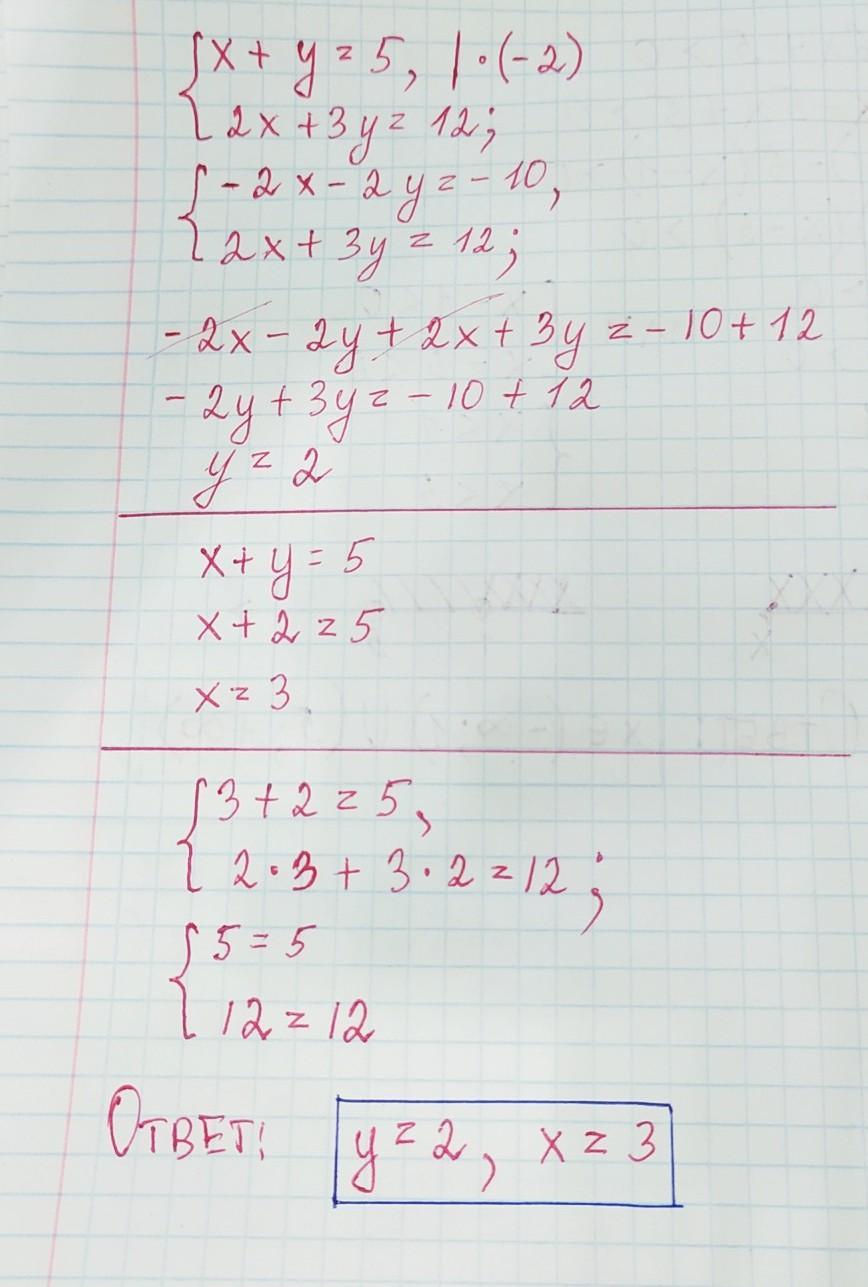 { x + y = 5, | · (-2)
2x + 3y = 12;
{ -2x - 2y = -10,
2x + 3y = 12;
-2x - 2y + 2x + 3y = -10 + 12
-2y + 3y = -10 + 12
y = 2
x + y = 5
x + 2 = 5
x = 3
{ 3 + 2 = 5,
2 · 3 + 3 · 2 = 12;
{ 5 = 5
12 = 12
Ответ: y = 2, x = 3